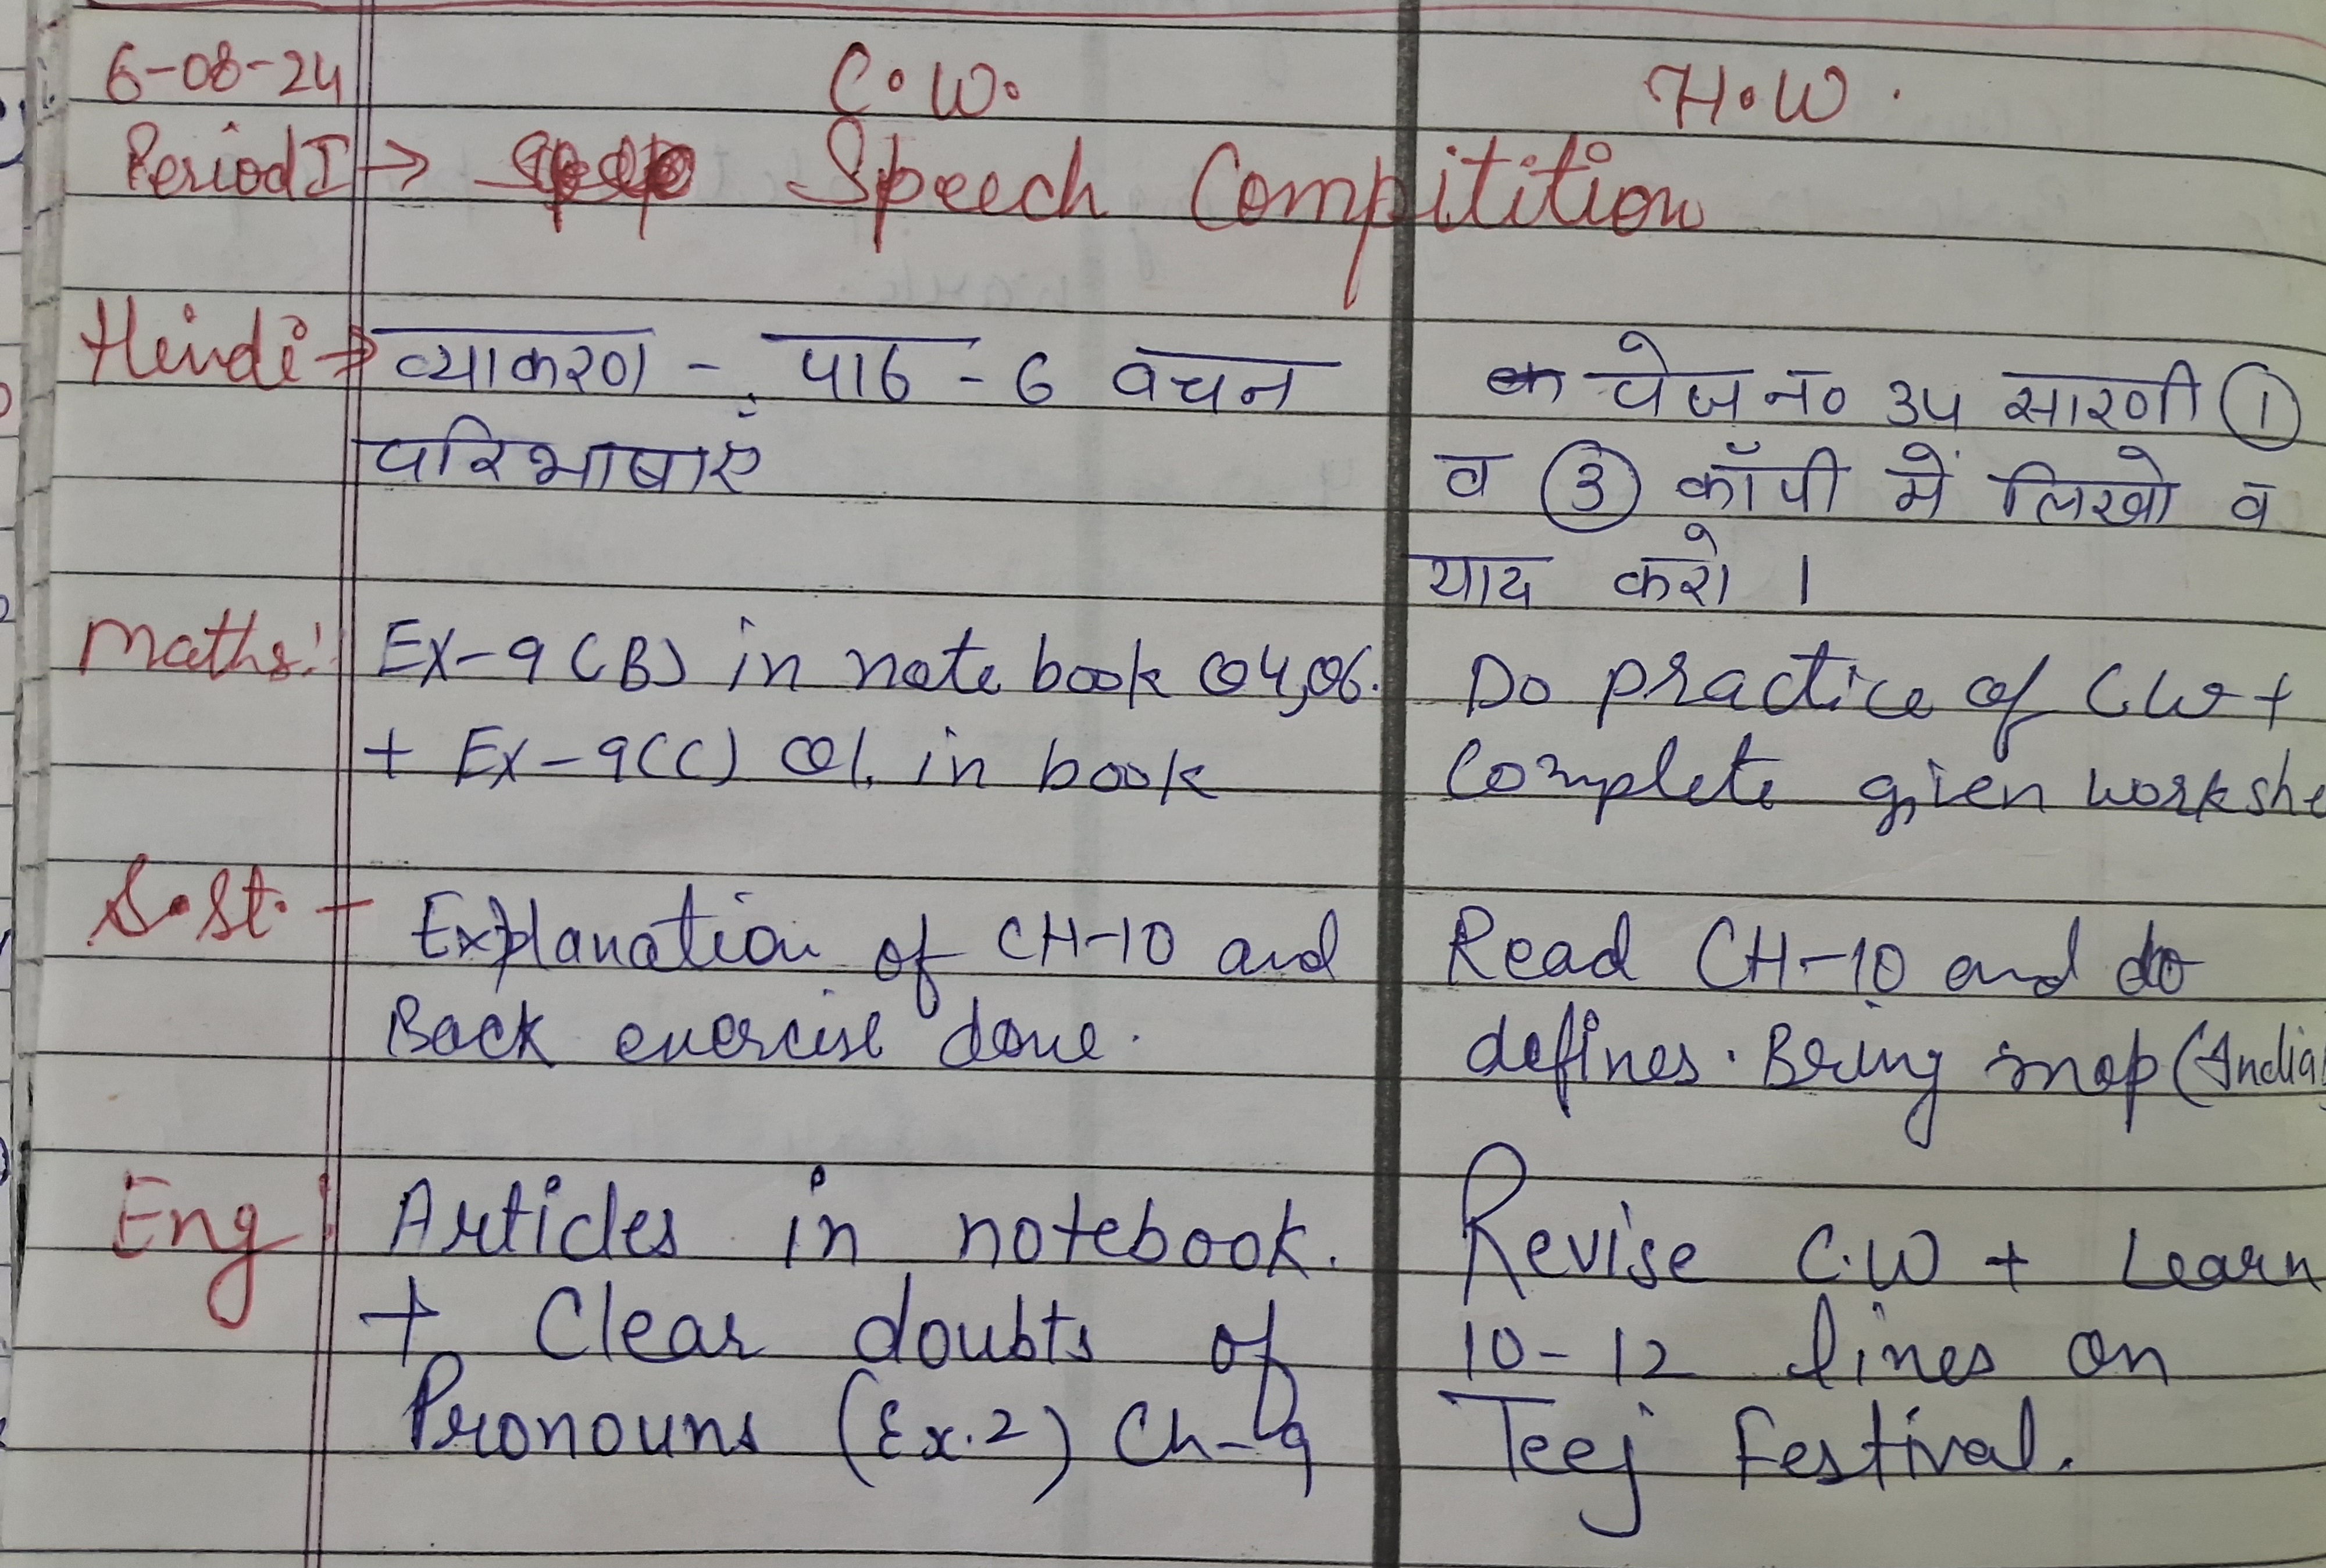 6-08-24 C.W. H.W.
Period I → Speech Compitition
Hindi → व्याकरण - पाठ - 6 वचन
परिभाषाएं
पेज नं० ३५ सारणी ①
व ③ कॉपी में लिखो व
याद करो ।
Maths: Ex-9(B) in note book Q4,Q6.
+ Ex-9(C) Q1. in book
Do practice of C.W +
Complete given workshe
S.St. - Explanation of CH-10 and
Back exercise done.
Read CH-10 and do
defines. Bring map (India)
Eng: Articles in notebook.
+ Clear doubts of
Pronouns (Ex.2) Ch-9
Revise C.W + Learn
10-12 lines on
Teej Festival.